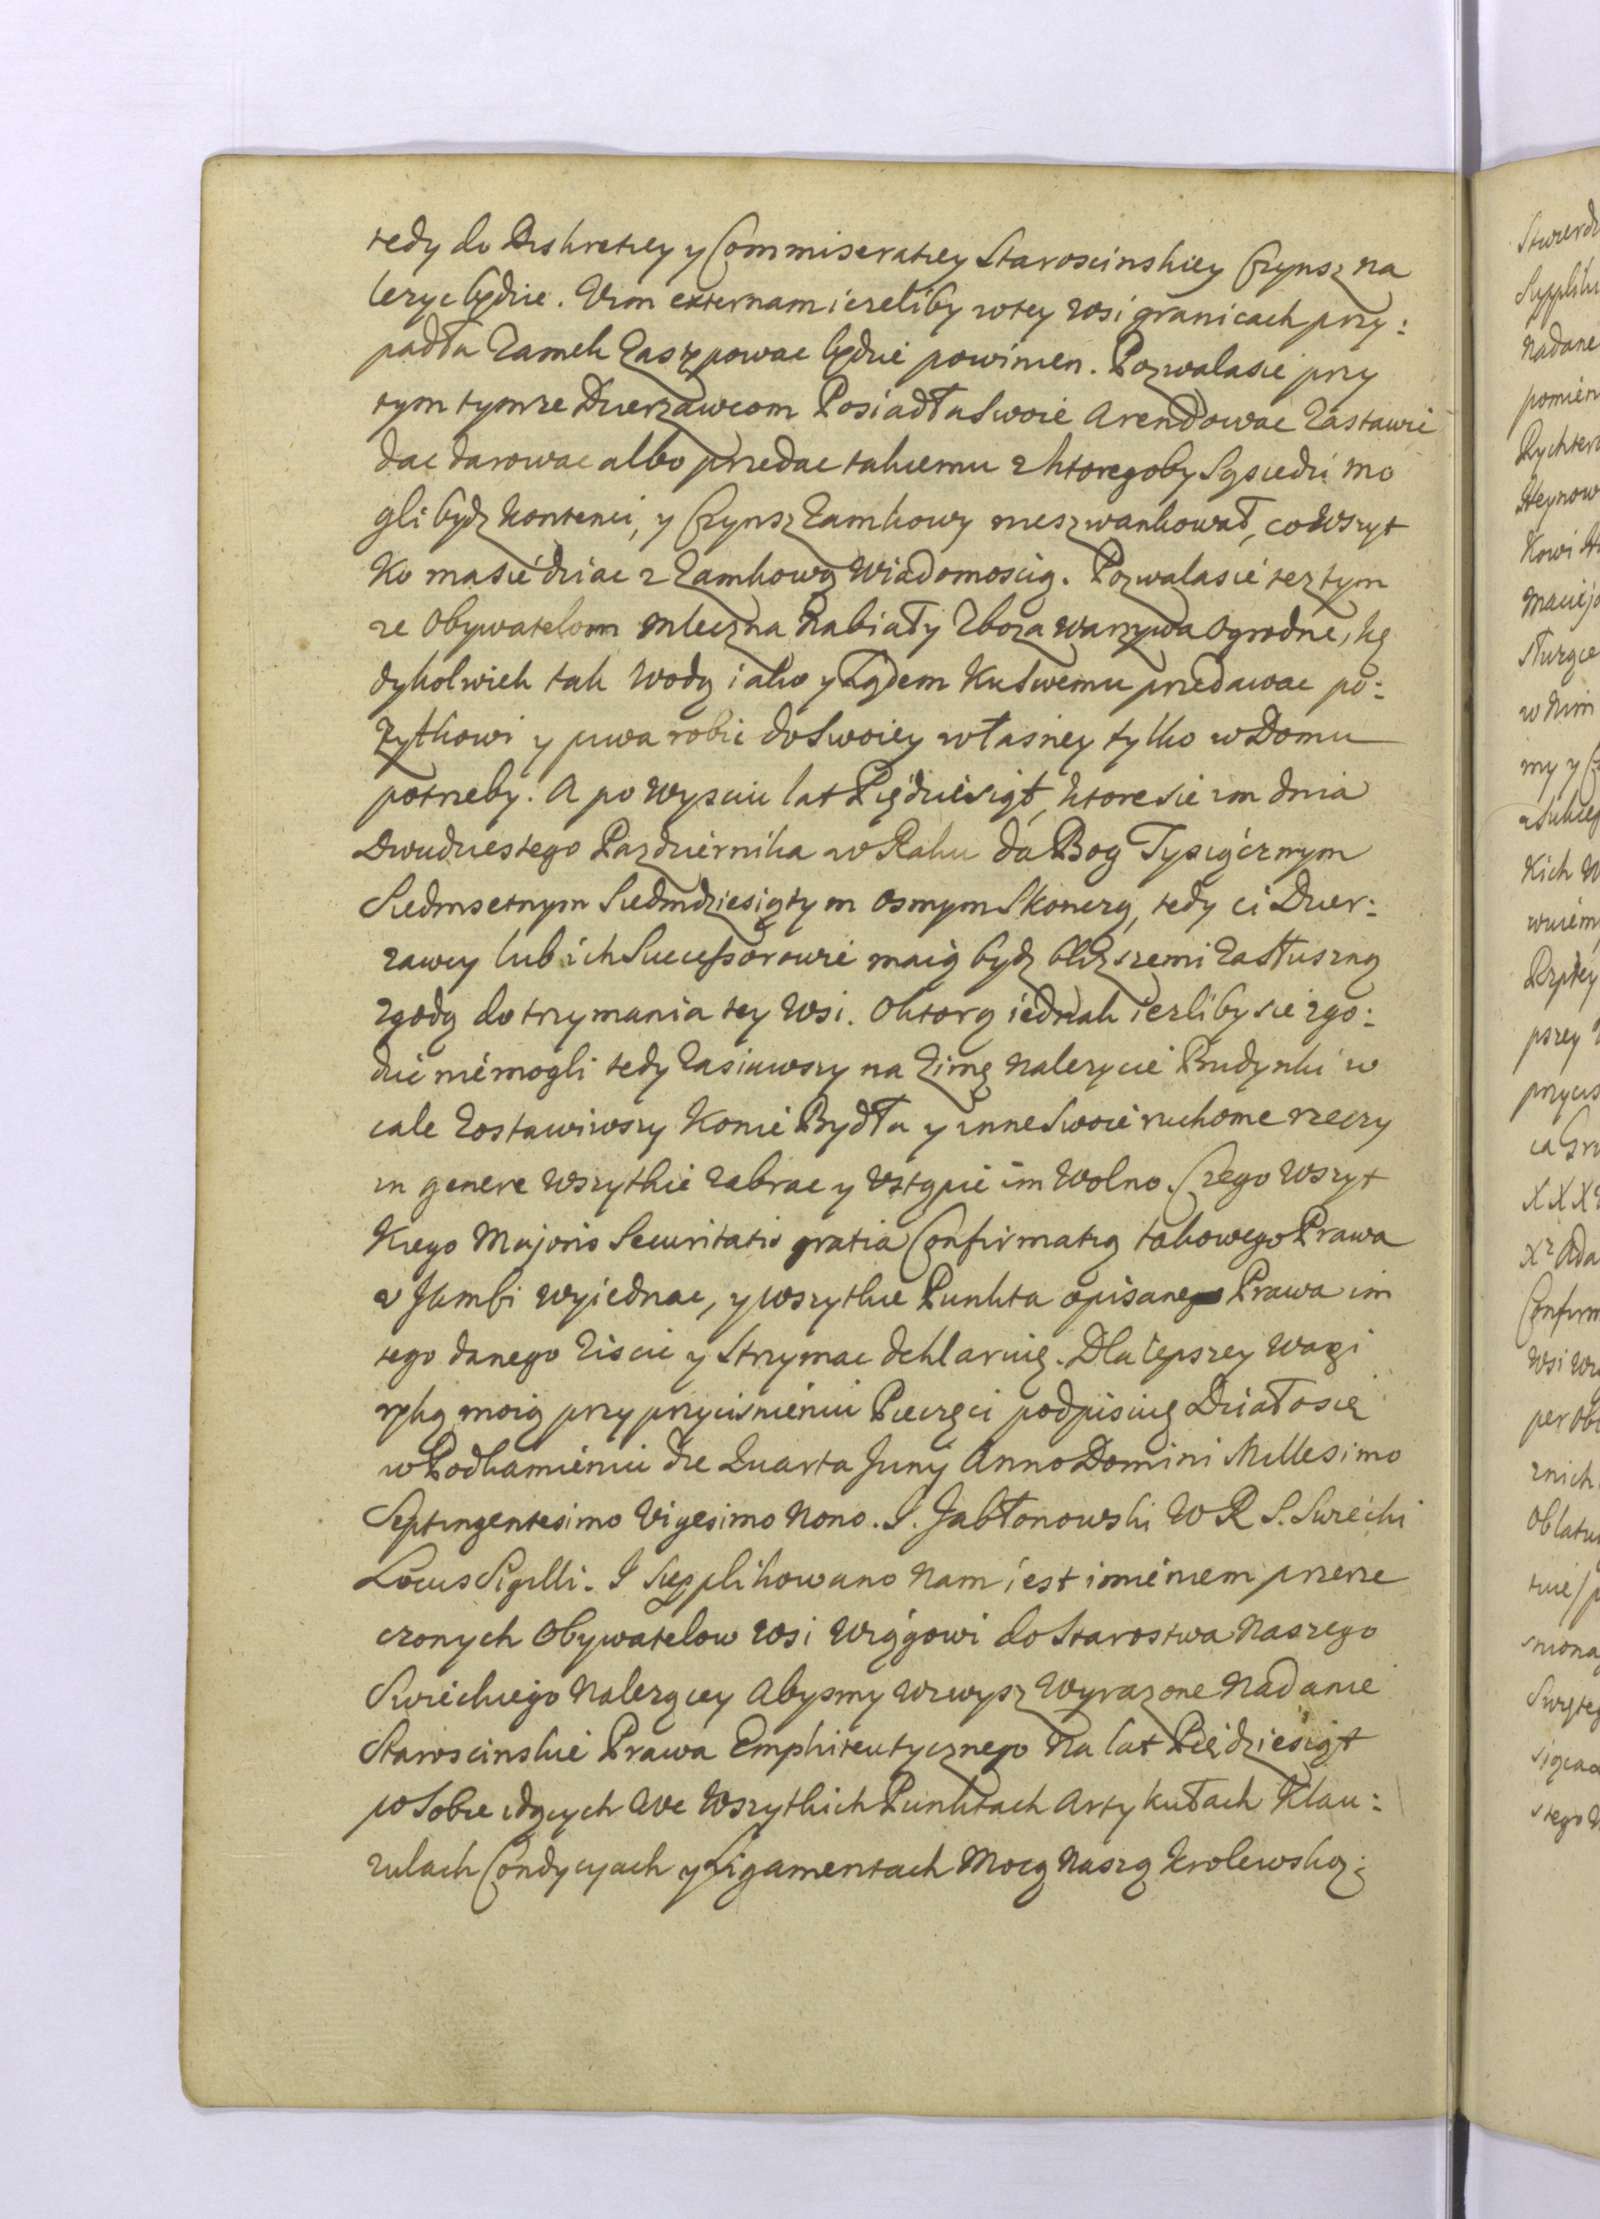 tedy do Diskretiey y Commiseratiey Staroscinskiey Czynsz na
lezyc będzie. Vim externam iezeliby wtey wsi granicach przy:
padła Zamek Zasępowac będzie powinien. Pozwalasie przy
tym tymze Dzierzawcom Posiadła Swoie Arendowac Zastawic
dac darowac albo przedac takiemu z ktoregoby Sąsiedzi mo
gli bydz kontenci, y Czynsz Zamkowy nieszwankował, co Wszyt
ko masie dziac z Zamkową Wiadomoscią. Pozwalasie tez tym
ze Obywatelom mleczna Nabiały Zboza Warzywa Ogrodne, kę
dykolwiek tak Wodą iako y Lądem ku Swemu przedawac po:
zytkowi y piwa robic do Swoiey własney tylko w Domu
potrzeby. A po Wysciu lat Piędziesiąt, ktore sie im dnia
Dwudziestego Pazdziernika w Roku da Bog Tysiącznym
Siedmsetnym Siedmdziesiątym Osmym Skonczą, tedy ci Dzier:
zawcy lub ich Successorowie maią bydz blizszemi Zasłuszną
zgodą do trzymania tey Wsi. O ktorą iednak iezliby sie zgo:
dzic niemogli tedy Zasiawszy na Zimę Nalezycie Budynki w
cale Zostawiwszy Konie Bydła y inne Swoie ruchome rzeczy
in genere Wszytkie zabrac y Ustąpic im Wolno. Czego Wszyt
kiego Majoris Securitatis gratia Confirmatią takowego Prawa
z Jkmsci Wyiednac, y Wszytkie Punkta opisanego Prawa im
tego danego Ziscic y Strzymac deklaruię. Dla lepszey Wagi
ręką moią przy przycisnieniu Pieczęci podpisuię Działosię
w Podkamieniu die Quarta Junij Anno Domini Millesimo
Septingentesimo Vigesimo Nono. S. Jabłonowski W R S. Swiecki
Locus Sigilli. I Supplikowano Nam iest imieniem przerze
czonych Obywatelow Wsi Wiągowi do Starostwa Naszego
Swieckiego Nalezącey Abysmy wzwysz Wyrazone Nadanie
Staroscinskie Prawa Emphiteutycznego Na lat Piędziesiąt
po Sobie idących We Wszytkich Punktach Artykułach Klau:
zulach Condycyach y Ligamentach Mocą Naszą Krolewską: